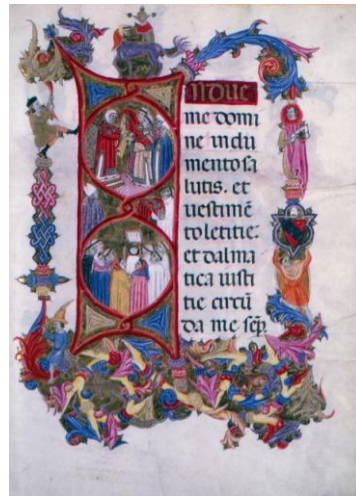 INDUE
me domi
ne indu
mento sa
lutis. et
uestimē
to letitie:
et dalma
tica iusti
tie circū
da me sēp.